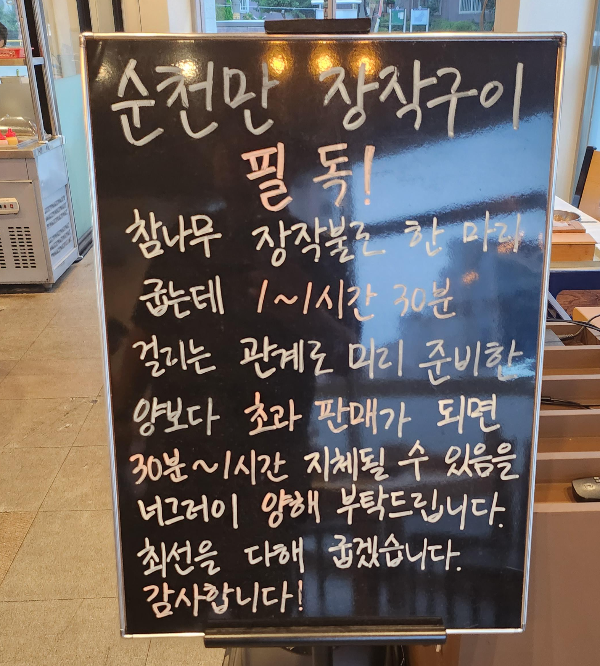 순천만 장작구이
필독!
참나무 장작불로 한 마리
굽는데 1~1시간 30분
걸리는 관계로 미리 준비한
양보다 초과 판매가 되면
30분~1시간 지체될 수 있음을
너그러이 양해 부탁드립니다.
최선을 다해 굽겠습니다.
감사합니다!